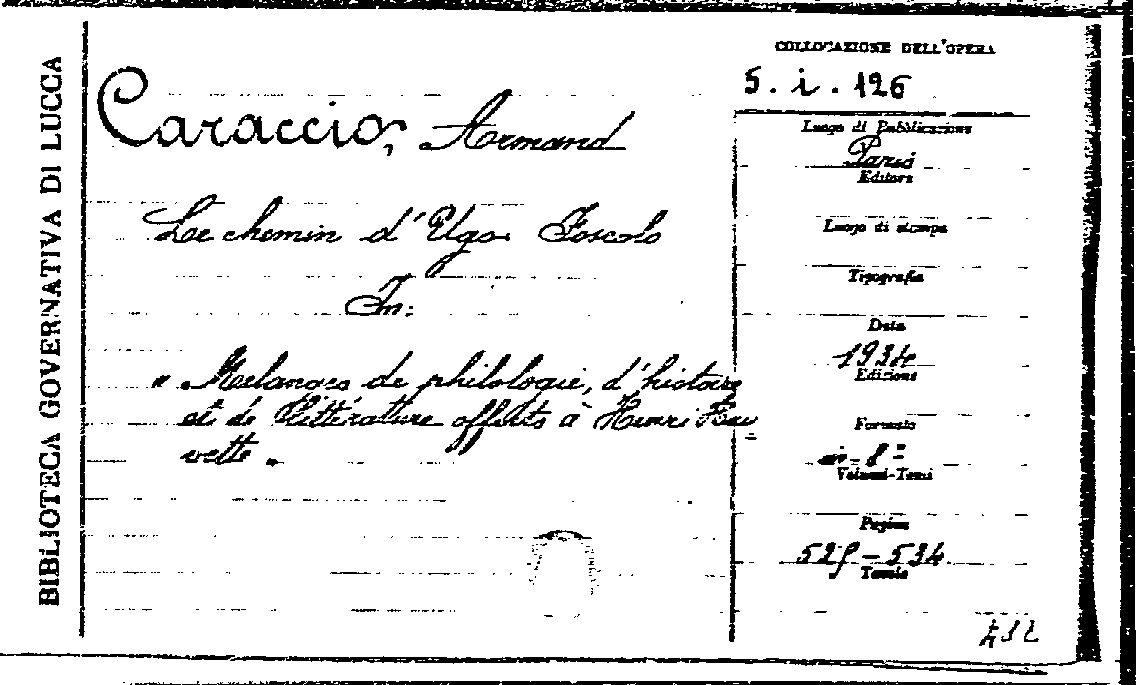 BIBLIOTECA GOVERNATIVA DI LUCCA
Caraccio, Armand
Le chemin d'Ugo Foscolo
In:
" Melanges de philologie, d'histoire
et de littérature offerts à Henri Hau
vette „
COLLOCAZIONE DELL'OPERA
5. i. 126
Luogo di Pubblicazione
Paris
Editore
Luogo di stampa
Tipografia
Data
1934
Edizione
Formato
in-8º
Volumi-Tomi
Pagine
529-534
Tavole